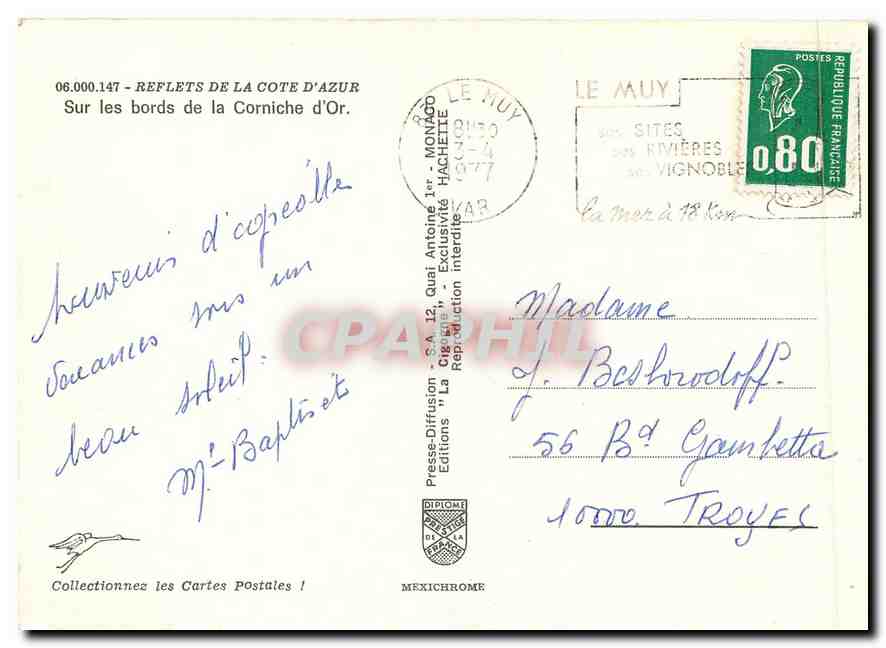 06.000.147 - REFLETS DE LA COTE D'AZUR
Sur les bords de la Corniche d'Or.
souvenirs d'agréable
vacances sous un
beau soleil.
Mr Baptiste
Collectionnez les Cartes Postales !
Presse-Diffusion - S.A. 12, Quai Antoine 1er - MONACO
Editions "La Cigogne" - Exclusivité HACHETTE
Reproduction interdite
DIPLOME
PRESTIGE
DE LA
FRANCE
MEXICHROME
LE MUY
8H30
3-4
1977
VAR
LE MUY
ses SITES
ses RIVIÈRES
ses VIGNOBLES
la mer à 18 Km
POSTES
REPUBLIQUE FRANÇAISE
0,80
Madame
J. Beshorodoff.
56 Bd Gambetta
10000. TROYES
CPAPHIL